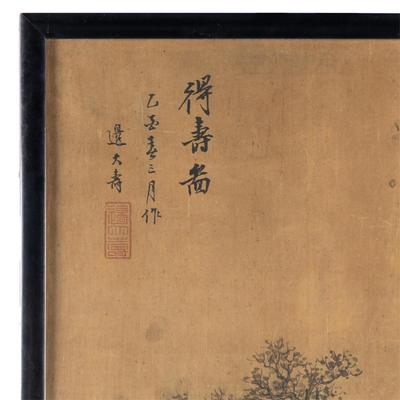 得壽啚
乙酉春三月作
邊大壽